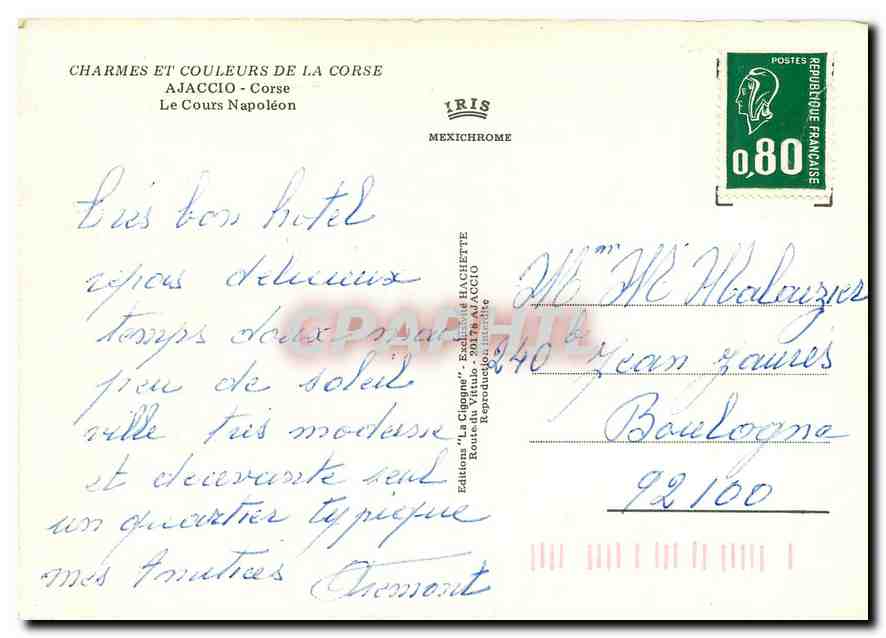 CHARMES ET COULEURS DE LA CORSE
AJACCIO - Corse
Le Cours Napoléon
IRIS
MEXICHROME
POSTES
REPUBLIQUE FRANÇAISE
0,80
très bon hotel
repas délicieux
temps doux mais
peu de soleil
ville très moderne
et decevante seul
un quartier typique
mes Amitiés
Editions "La Cigogne" - Exclusivité HACHETTE
Route du Vittulo - 20176 AJACCIO
Reproduction interdite
Mm Mr Malauzier
240 bd Jean Jaurès
Boulogne
92100
CPAPHIL